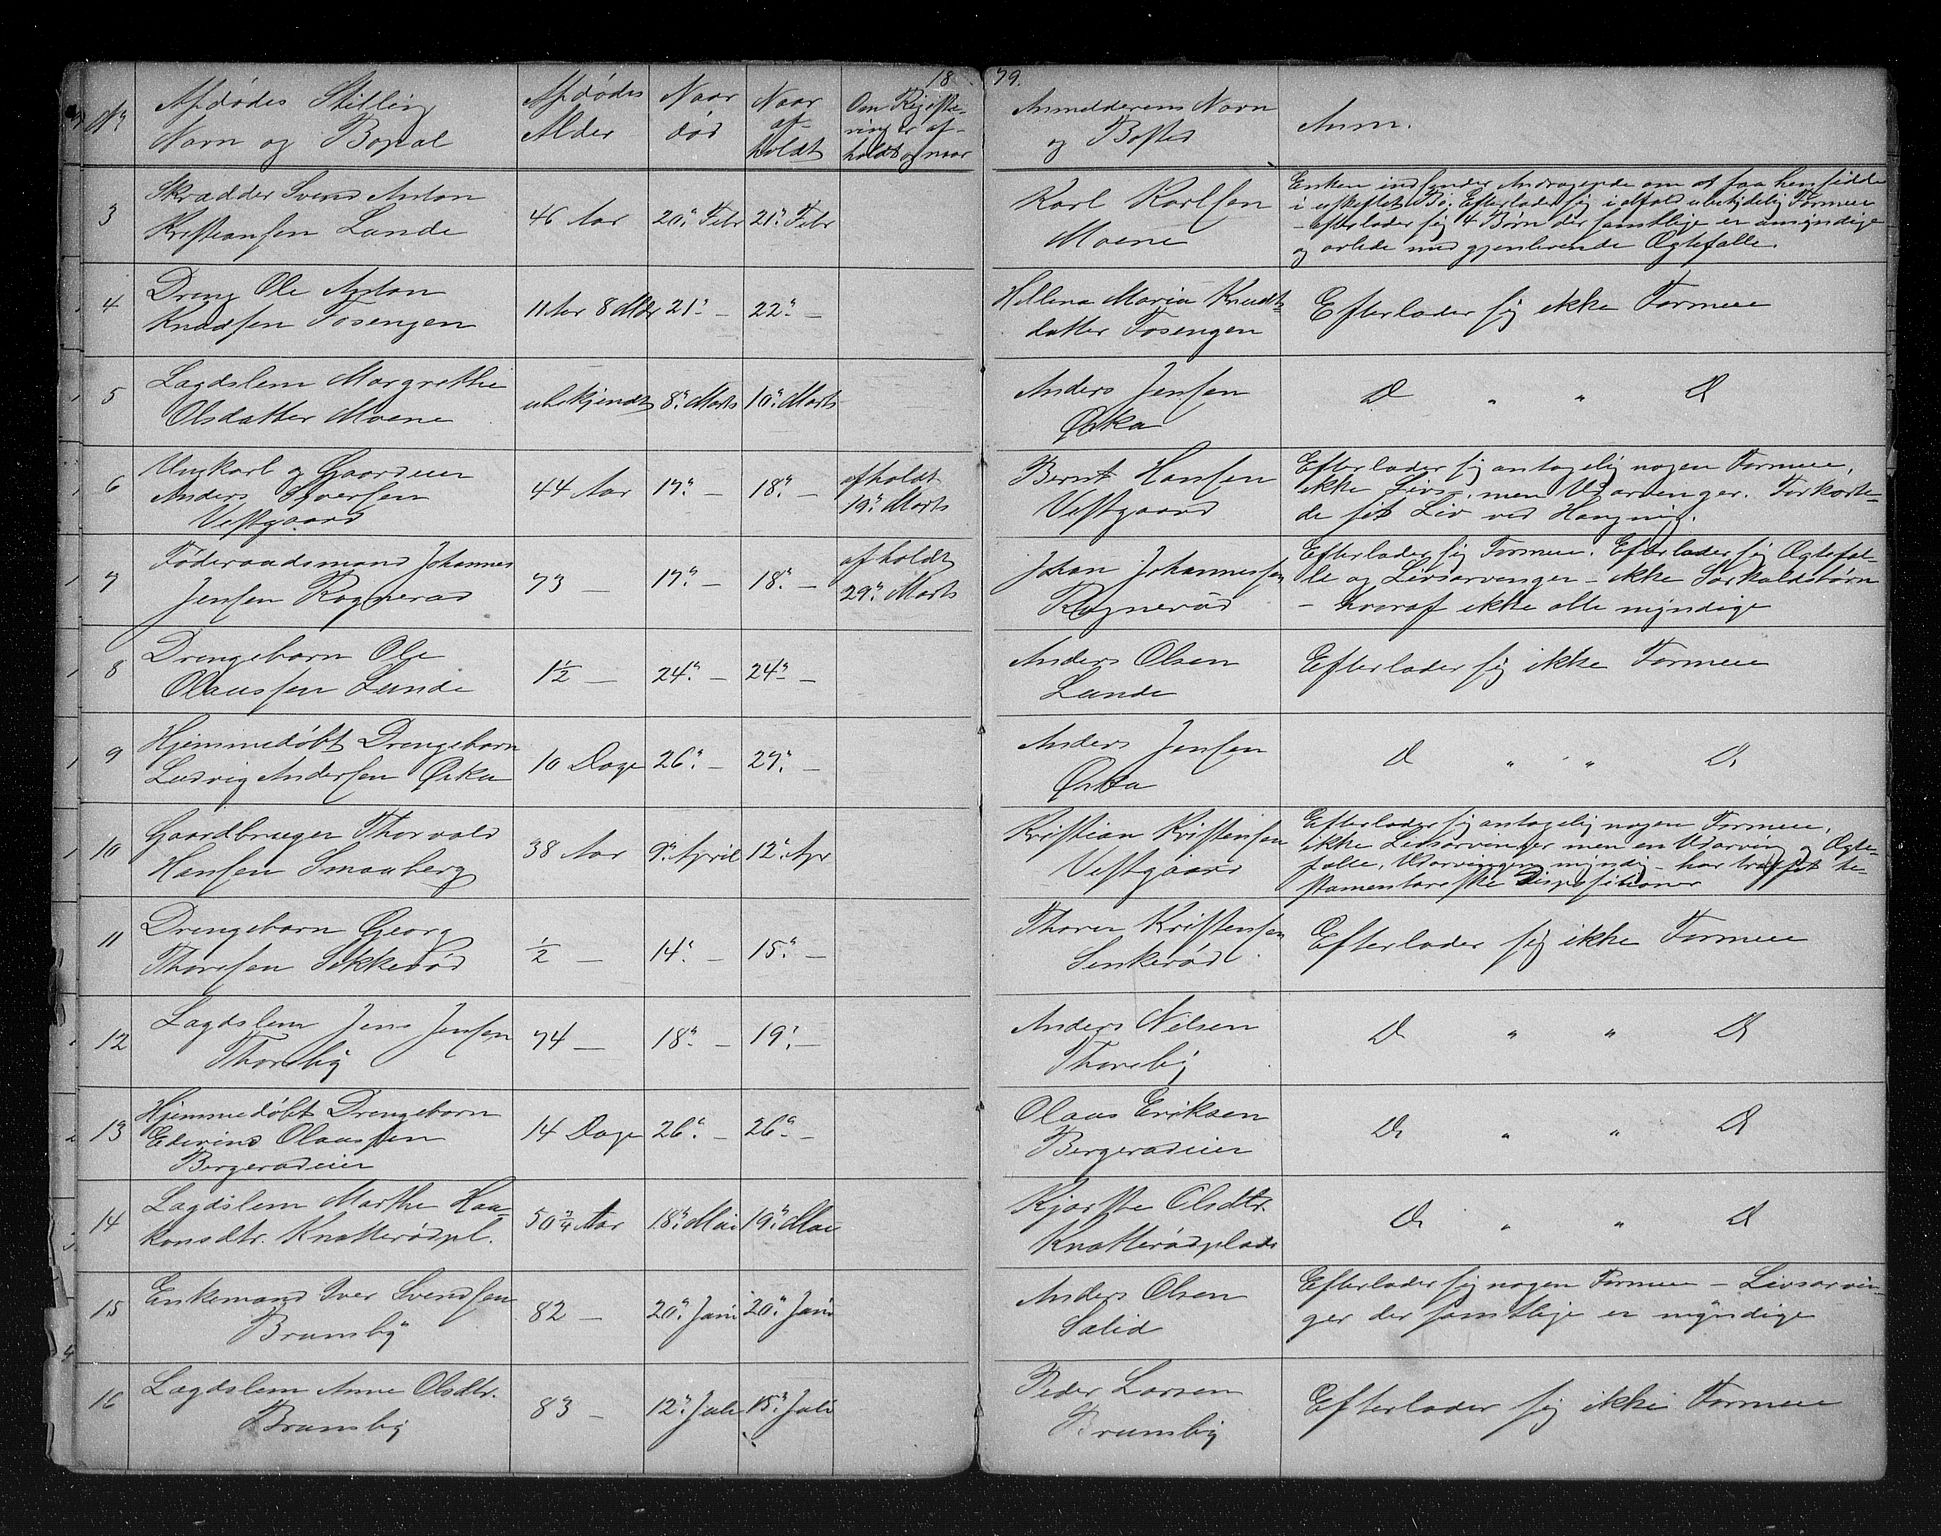 18 79.
No Afdødes Stilling Navn og Bopæl
Afdødes Alder
Naar død
Naar af- holdt
Om Registre- ring er af- holdt og naar
Anmelderens Navn og Bosted
Anm.
3 Skrædder Svend Anton
Kristiansen Lunde
46 Aar 20de Febr 21de Febr
Karl Karlsen
Moene
Enken indsender Andragende om at faa hensidde
i uskiftet Bo. Efterlader sig i alfald ubetydelig Formue
– Efterlader sig 4 Børn der samtlige er umyndige
og avlede med gjenlevende Ægtefælle.
4 Dreng Ole Anton
Knudsen Tosengen
11 Aar 8 Mdr 21" – 22" –
Hellena Maria Knudt-
datter Tosengen
Efterlader sig ikke Formue
5 Lagdslem Margrethe
Olsdatter Moene
ubekjendt 8" Marts 10" Marts
Anders Jensen
Ørka
Do " " Do
6 Ungkarl og Gaardeier
Anders Iversen
Vestgaard
44 Aar 17" – 18" –
afholdt
19" Marts
Bernt Hansen
Vestgaard
Efterlader sig antagelig nogen Formue,
ikke Livs-, men Udarvinger. Forkorte-
de sit Liv ved Hængning.
7 Føderaadsmand Johannes
Jensen Rognerød
73 – 17" – 18" –
afholdt
29" Marts
Johan Johannessen
Rognerød
Efterlader sig Formue. Efterlader sig Ægtefæl-
le og Livsarvinger – ikke Særkuldsbørn
– hvoraf ikke alle myndige
8 Drengebarn Ole
Olaussen Lunde
1½ – 24" – 24" –
Anders Olsen
Lunde
Efterlader sig ikke Formue
9 Hjemmedøbt Drengebarn
Ludvig Andersen Ørka
10 Dage 26" – 27" –
Anders Jensen
Ørka
Do " " Do
10 Gaardbruger Thorvald
Hansen Smaaberg
38 Aar 9" April 12" Apr
Kristian Kristensen
Vestgaard
Efterlader sig antagelig nogen Formue,
ikke Livsarvinger men en Udarving og Ægte-
fælle, Udarvingen myndig – har truffet te-
stamentariske Dispositioner
11 Drengebarn Georg
Thoresen Sekkerød
½ – 14" – 15" –
Thorer Kristensen
Senkerød
Efterlader sig ikke Formue
12 Lagdslem Jens Jensen
Thoreby
74 – 18" – 19" –
Anders Nilsen
Thoreby
Do " " Do
13 Hjemmedøbt Drengebarn
Edevind Olaussen
Bergerødeier
14 Dage 26" – 26" –
Olaus Eriksen
Bergerødeier
Do " " Do
14 Lagdslem Marthe Haa-
konsdtr. Knatterødpl.
50 ¾ Aar 18" Mai 19" Mai
Kjerstte Olsdtr.
Knatterødplads
Do " " Do
15 Enkemand Iver Svendsen
Brunsby
82 – 20" Juni 20" Juni
Anders Olsen
Solid
Efterlader sig nogen Formue – Livsarvin-
ger der samtlige er myndige
16 Lægdslem Anne Olsdtr.
Brunsby
83 – 12" Juli 15" Juli
Peder Larsen
Brunsby
Efterlader sig ikke Formue